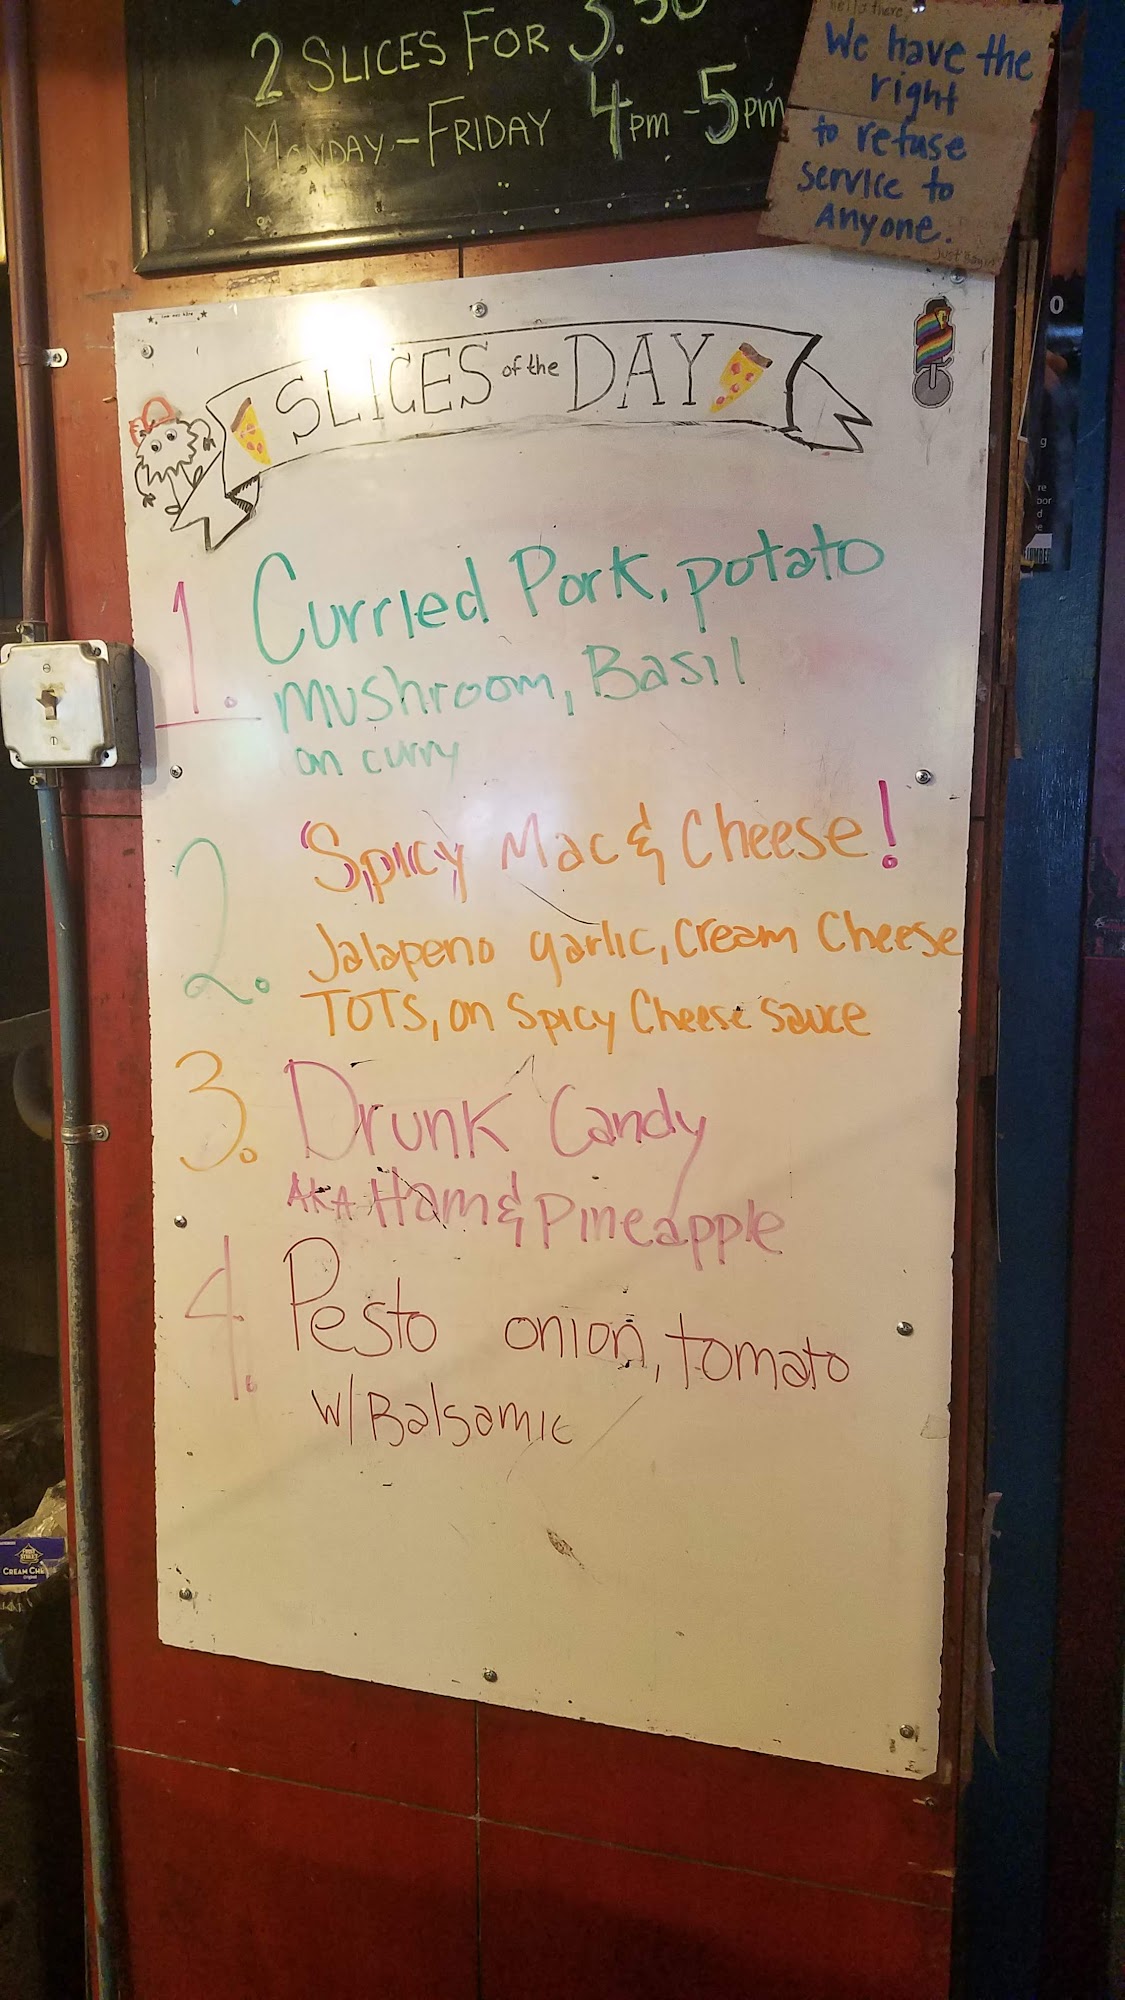 2 SLICES FOR 3.50
MONDAY - FRIDAY 4PM - 5PM
hello there,
We have the
right
to refuse
service to
anyone.
SLICES of the DAY
1. Curried Pork, potato
mushroom, Basil
on curry
2. Spicy Mac & Cheese!
Jalapeno garlic, Cream Cheese
TOTS, on Spicy Cheese Sauce
3. Drunk Candy
AKA Ham & Pineapple
4. Pesto onion, tomato
w/ Balsamic
CREAM